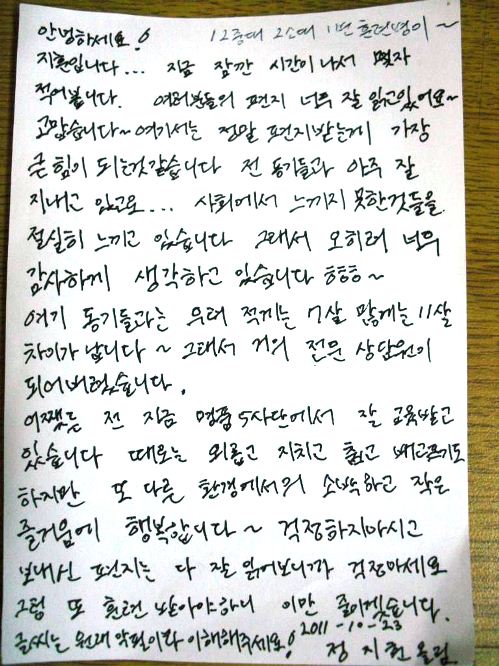 안녕하세요! 12중대 2소대 11번 훈련병이~
지훈입니다... 지금 잠깐 시간이 나서 몇자
적어봅니다. 여러분들의 편지 너무 잘 읽고있어요~
고맙습니다~ 여기서는 정말 편지받는게 가장
큰 힘이 되는것같습니다 전 동기들과 아주 잘
지내고 있고요... 사회에서 느끼지 못한것들을
절실히 느끼고 있습니다 그래서 오히려 너무
감사하게 생각하고 있습니다 ㅎㅎㅎ~
여기 동기들과는 무려 적게는 7살 많게는 11살
차이가 납니다~ 그래서 거의 전문 상담원이
되어버렸습니다.
어쨌든 전 지금 명품 5사단에서 잘 교육받고
있습니다 때로는 외롭고 지치고 춥고 배고프기도
하지만 또 다른 환경에서의 소박하고 작은
즐거움에 행복합니다~ 걱정하지마시고
보내신 편지는 다 잘 읽어보니까 걱정마세요
그럼 또 훈련 받아야하니 이만 줄이겠습니다.
글씨는 원래 악필이라 이해해주세요! 2011-10-23
정지훈 올림